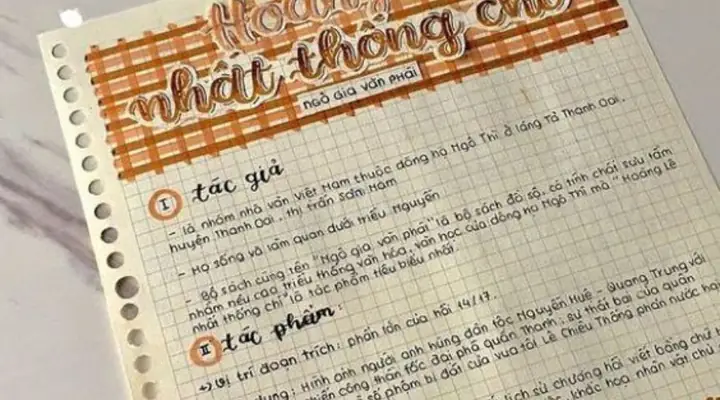 Hoàng
nhất thống chí
NGÔ GIA VĂN PHÁI
I tác giả
- là nhóm nhà văn Việt Nam thuộc dòng họ Ngô Thì ở làng Tả Thanh Oai,
huyện Thanh Oai, thị trấn Sơn Nam
- Họ sống và làm quan dưới triều Nguyễn
- Bộ sách cùng tên "Ngô gia văn phái" là bộ sách đồ sộ, có tính chất sưu tầm
nhằm nêu cao triều thống văn hóa, văn học của dòng họ Ngô Thì mà "Hoàng Lê
nhất thống chí" là tác phẩm tiêu biểu nhất
II tác phẩm:
→ Vị trí đoạn trích: phần lớn của hồi 14/17.
dung: Hình ảnh người anh hùng dân tộc Nguyễn Huệ - Quang Trung với
chiến công thần tốc đại phá quân Thanh; sự thất bại của quân
số phậm bi đát của vua tôi Lê Chiêu Thống phản nước hại
lịch sử chương hồi viết bằng chữ
khắc họa nhân vật chủ